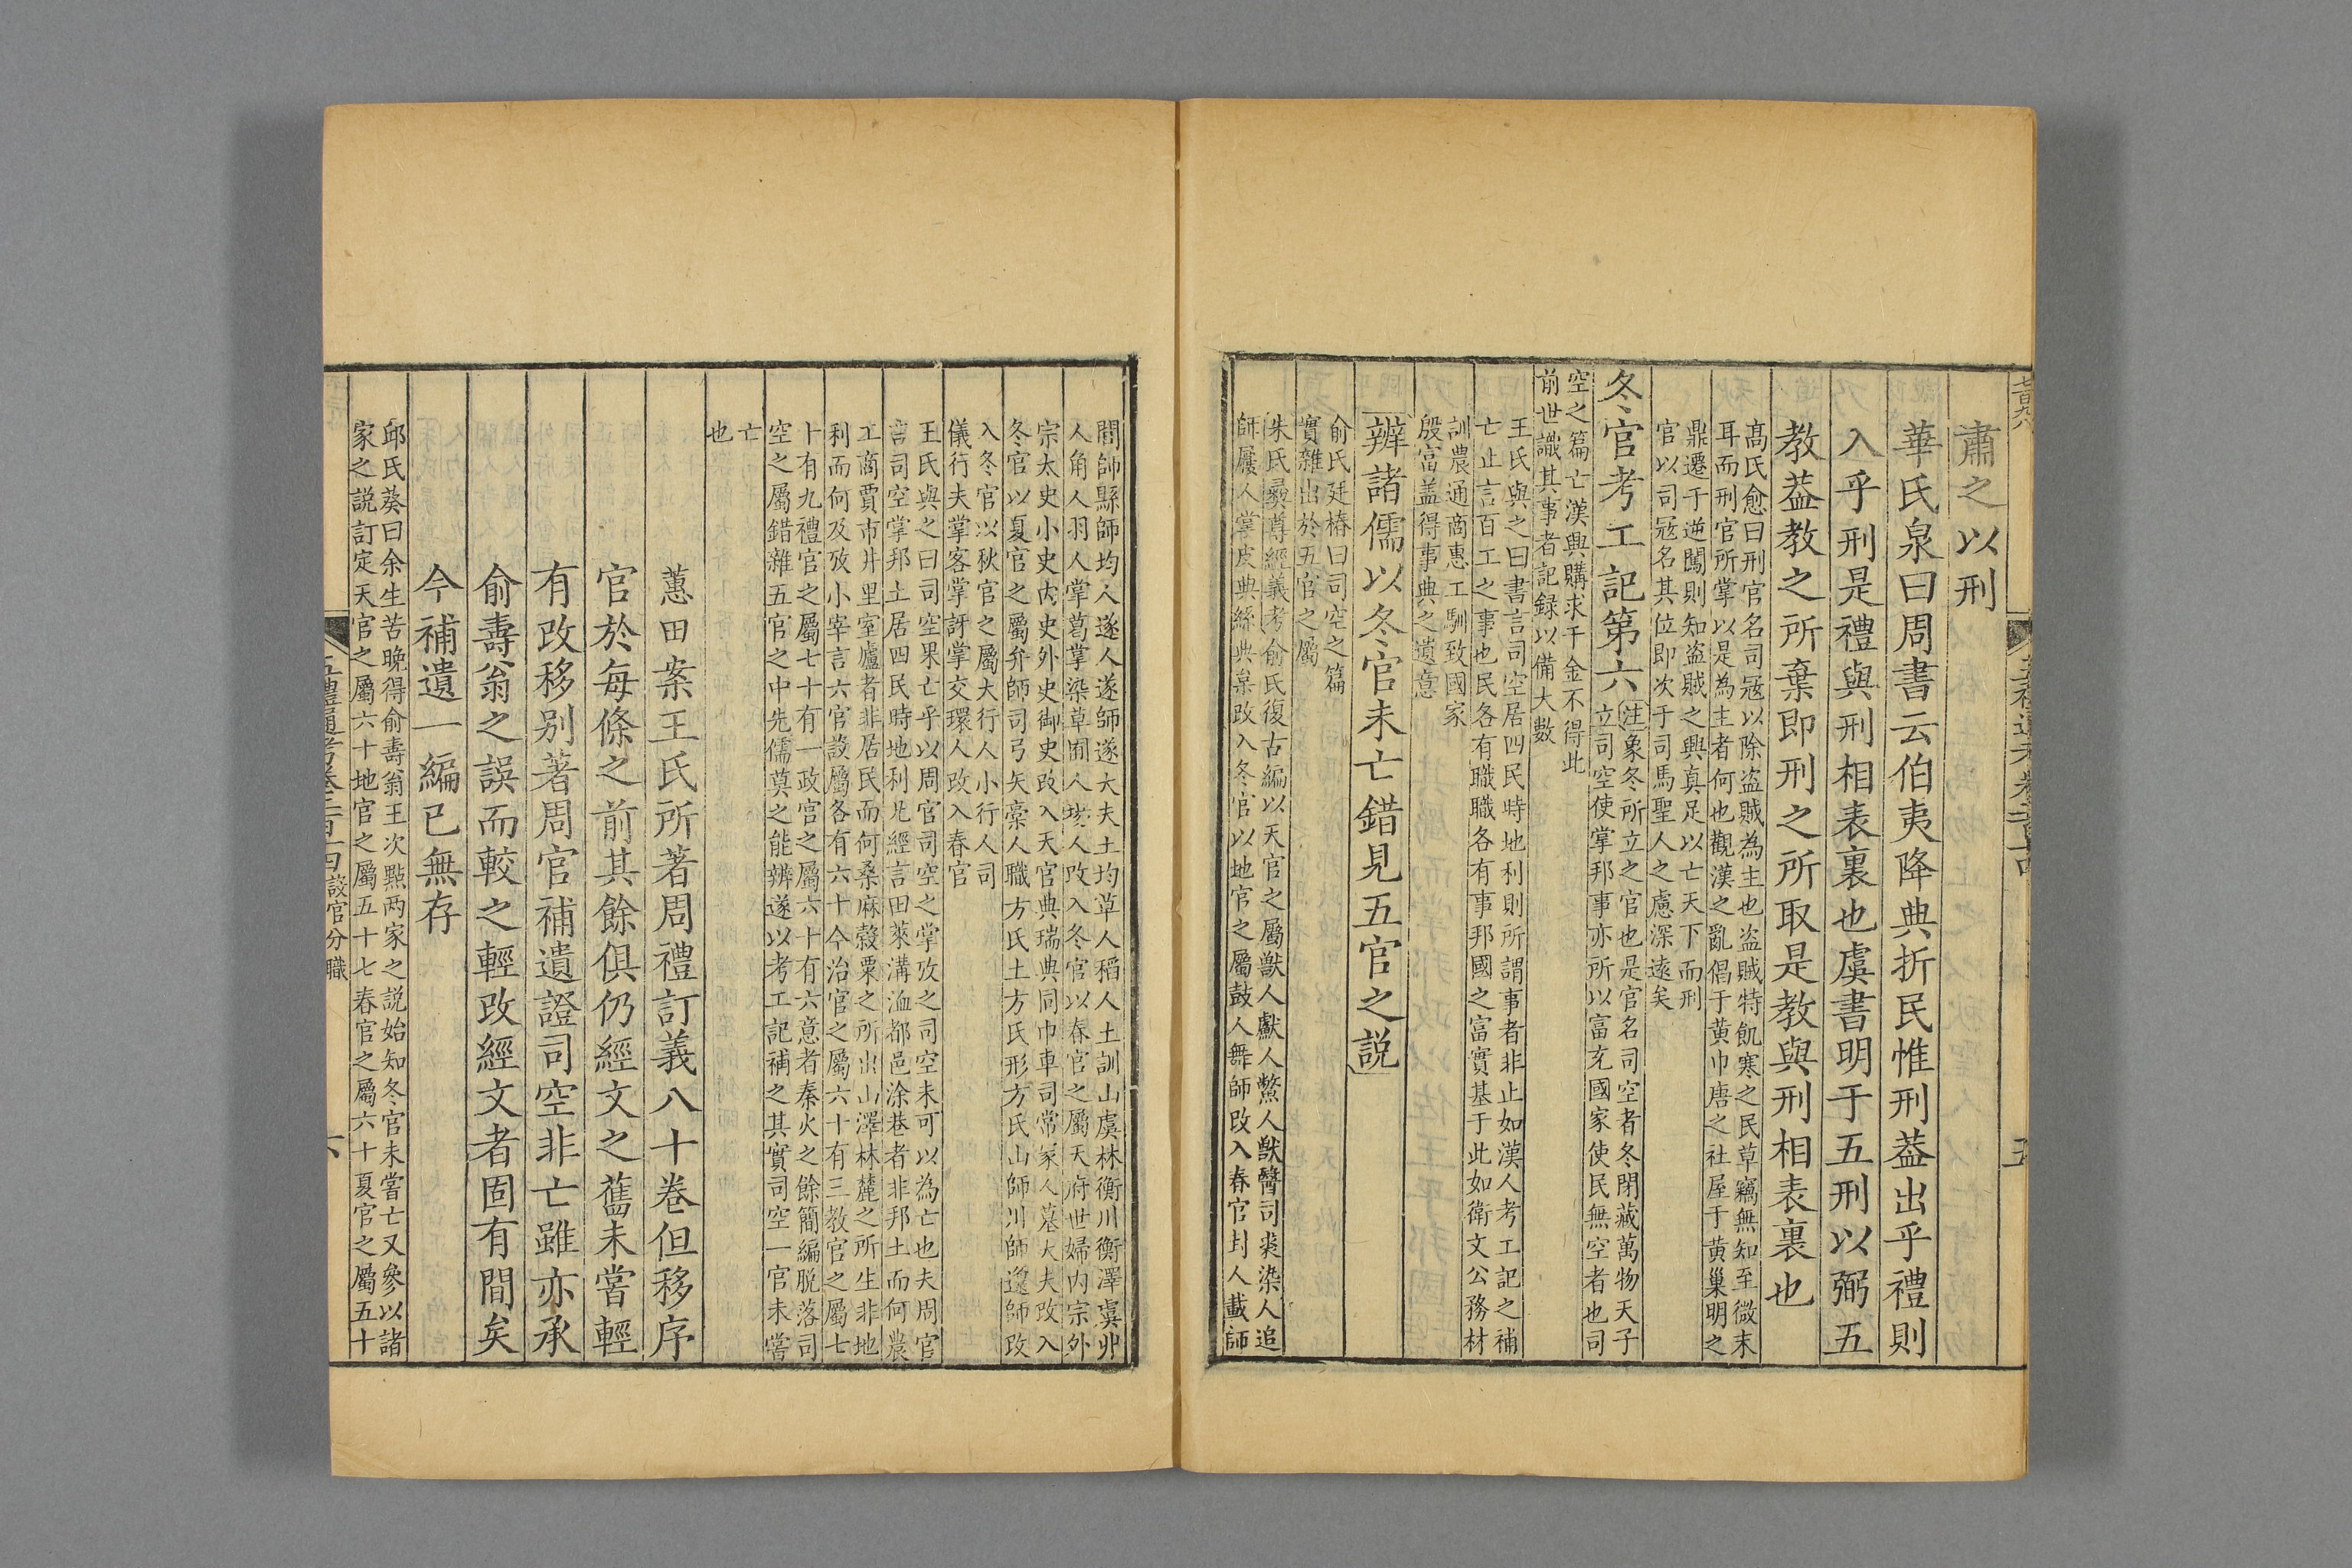 肅之以刑
華氏泉曰周書云伯夷降典折民惟刑葢出乎禮則
入乎刑是禮與刑相表裏也虞書明于五刑以弼五
教葢教之所棄即刑之所取是教與刑相表裏也
高氏愈曰刑官名司冦以除盗賊為主也盗賊特飢寒之民草竊無知至微末
耳而刑官所掌以是為主者何也觀漢之亂倡于黄巾唐之社屋于黄巢明之
鼎遷于逆闖則知盗賊之興真足以亡天下而刑
官以司冦名其位即次于司馬聖人之慮深逺矣
冬官考工記第六
注象冬所立之官也是官名司空者冬閉藏萬物天子
立司空使掌邦事亦所以富充國家使民無空者也司
空之篇亡漢興購求千金不得此
前世識其事者記録以備大數
王氏與之曰書言司空居四民時地利則所謂事者非止如漢人考工記之補
亡止言百工之事也民各有職職各有事邦國之富實基于此如衛文公務材
訓農通商惠工馴致國家
殷富盖得事典之遺意
辨諸儒以冬官未亡錯見五官之説
俞氏廷椿曰司空之篇
實雜出於五官之屬
朱氏彞尊經義考俞氏復古編以天官之屬獸人䱷人鱉人獸醫司裘染人追
師屨人掌皮典絲典枲改入冬官以地官之屬鼓人舞師改入春官封人載師
閭師縣師均人遂人遂師遂大夫土均草人稻人土訓山虞林衡川衡澤虞丱
人角人羽人掌葛掌染草囿人塲人改入冬官以春官之屬天府世婦内宗外
宗太史小史内史外史御史改入天官典瑞典同巾車司常冢人墓大夫改入
冬官以夏官之屬弁師司弓矢槀人職方氏土方氏形方氏山師川師邍師改
入冬官以秋官之屬大行人小行人司
儀行夫掌客掌訝掌交環人改入春官
王氏與之曰司空果亡乎以周官司空之掌攷之司空未可以為亡也夫周官
言司空掌邦土居四民時地利凡經言田萊溝洫都邑涂巷者非邦土而何農
工商賈市井里室廬者非居民而何桑麻穀粟之所出山澤林麓之所生非地
利而何及攷小宰言六官設屬各有六十今治官之屬六十有三教官之屬七
十有九禮官之屬七十有一政官之屬六十有六意者秦火之餘簡編脱落司
空之屬錯雜五官之中先儒莫之能辨遂以考工記補之其實司空一官未嘗
亡
也
蕙田案王氏所著周禮訂義八十卷但移序
官於毎條之前其餘俱仍經文之舊未嘗輕
有改移别著周官補遺證司空非亡雖亦承
俞壽翁之誤而較之輕改經文者固有間矣
今補遺一編已無存
邱氏葵曰余生苦晚得俞壽翁王次㸃两家之説始知冬官未嘗亡又參以諸
家之説訂定天官之屬六十地官之屬五十七春官之屬六十夏官之屬五十
五禮通考卷二百一四設官分職
六